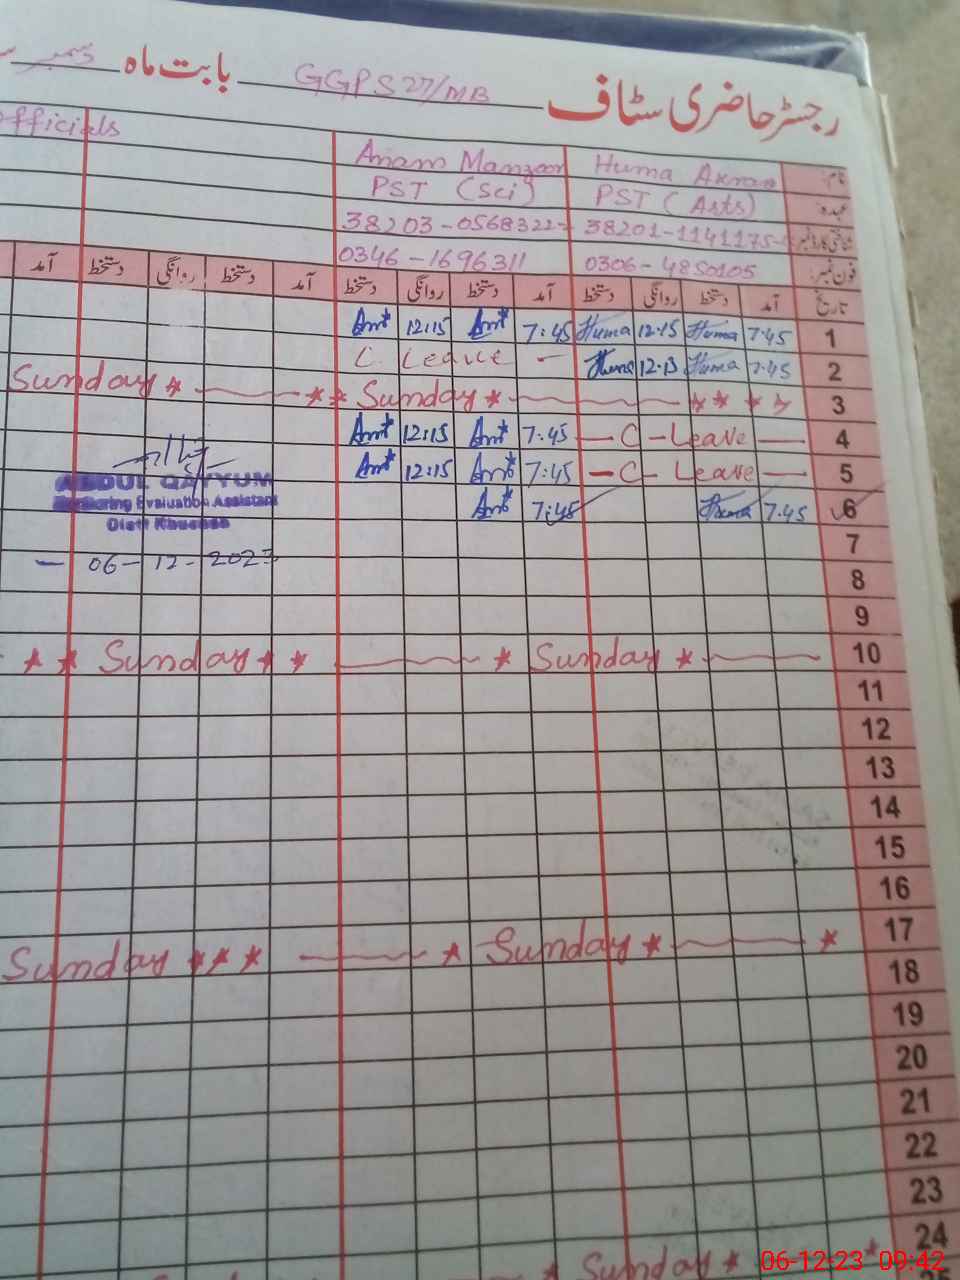 رجسٹر حاضری سٹاف GGPS 27/MB بابت ماہ دسمبر
نام: Huma Anam Manzoor officials
عہدہ: PST (Arts) PST (Sci)
شناختی کارڈ نمبر 38201-1141175- 38203-0568322-
فون نمبر: 0306-4850105 0346-1696311
تاریخ آمد دستخط روانگی دستخط آمد دستخط روانگی دستخط آمد دستخط روانگی دستخط آمد
1 7:45 Huma 12:15 Huma 7:45 Am 12:15 Am
2 7:45 Huma 12:13 Huma C Leave
3 Sunday Sunday
4 C-Leave 7:45 Am 12:15 Am
5 C-Leave 7:45 Am 12:15 Am
6 7.45 Huma 7:45 Am
ABDUL QAYYUM
Monitoring Evaluation Assistant
Distt Khushab
7
8
06-12-2023
9
10 Sunday Sunday
11
12
13
14
15
16
17 Sunday Sunday
18
19
20
21
22
23
24 Sunday
06-12-23 09:42